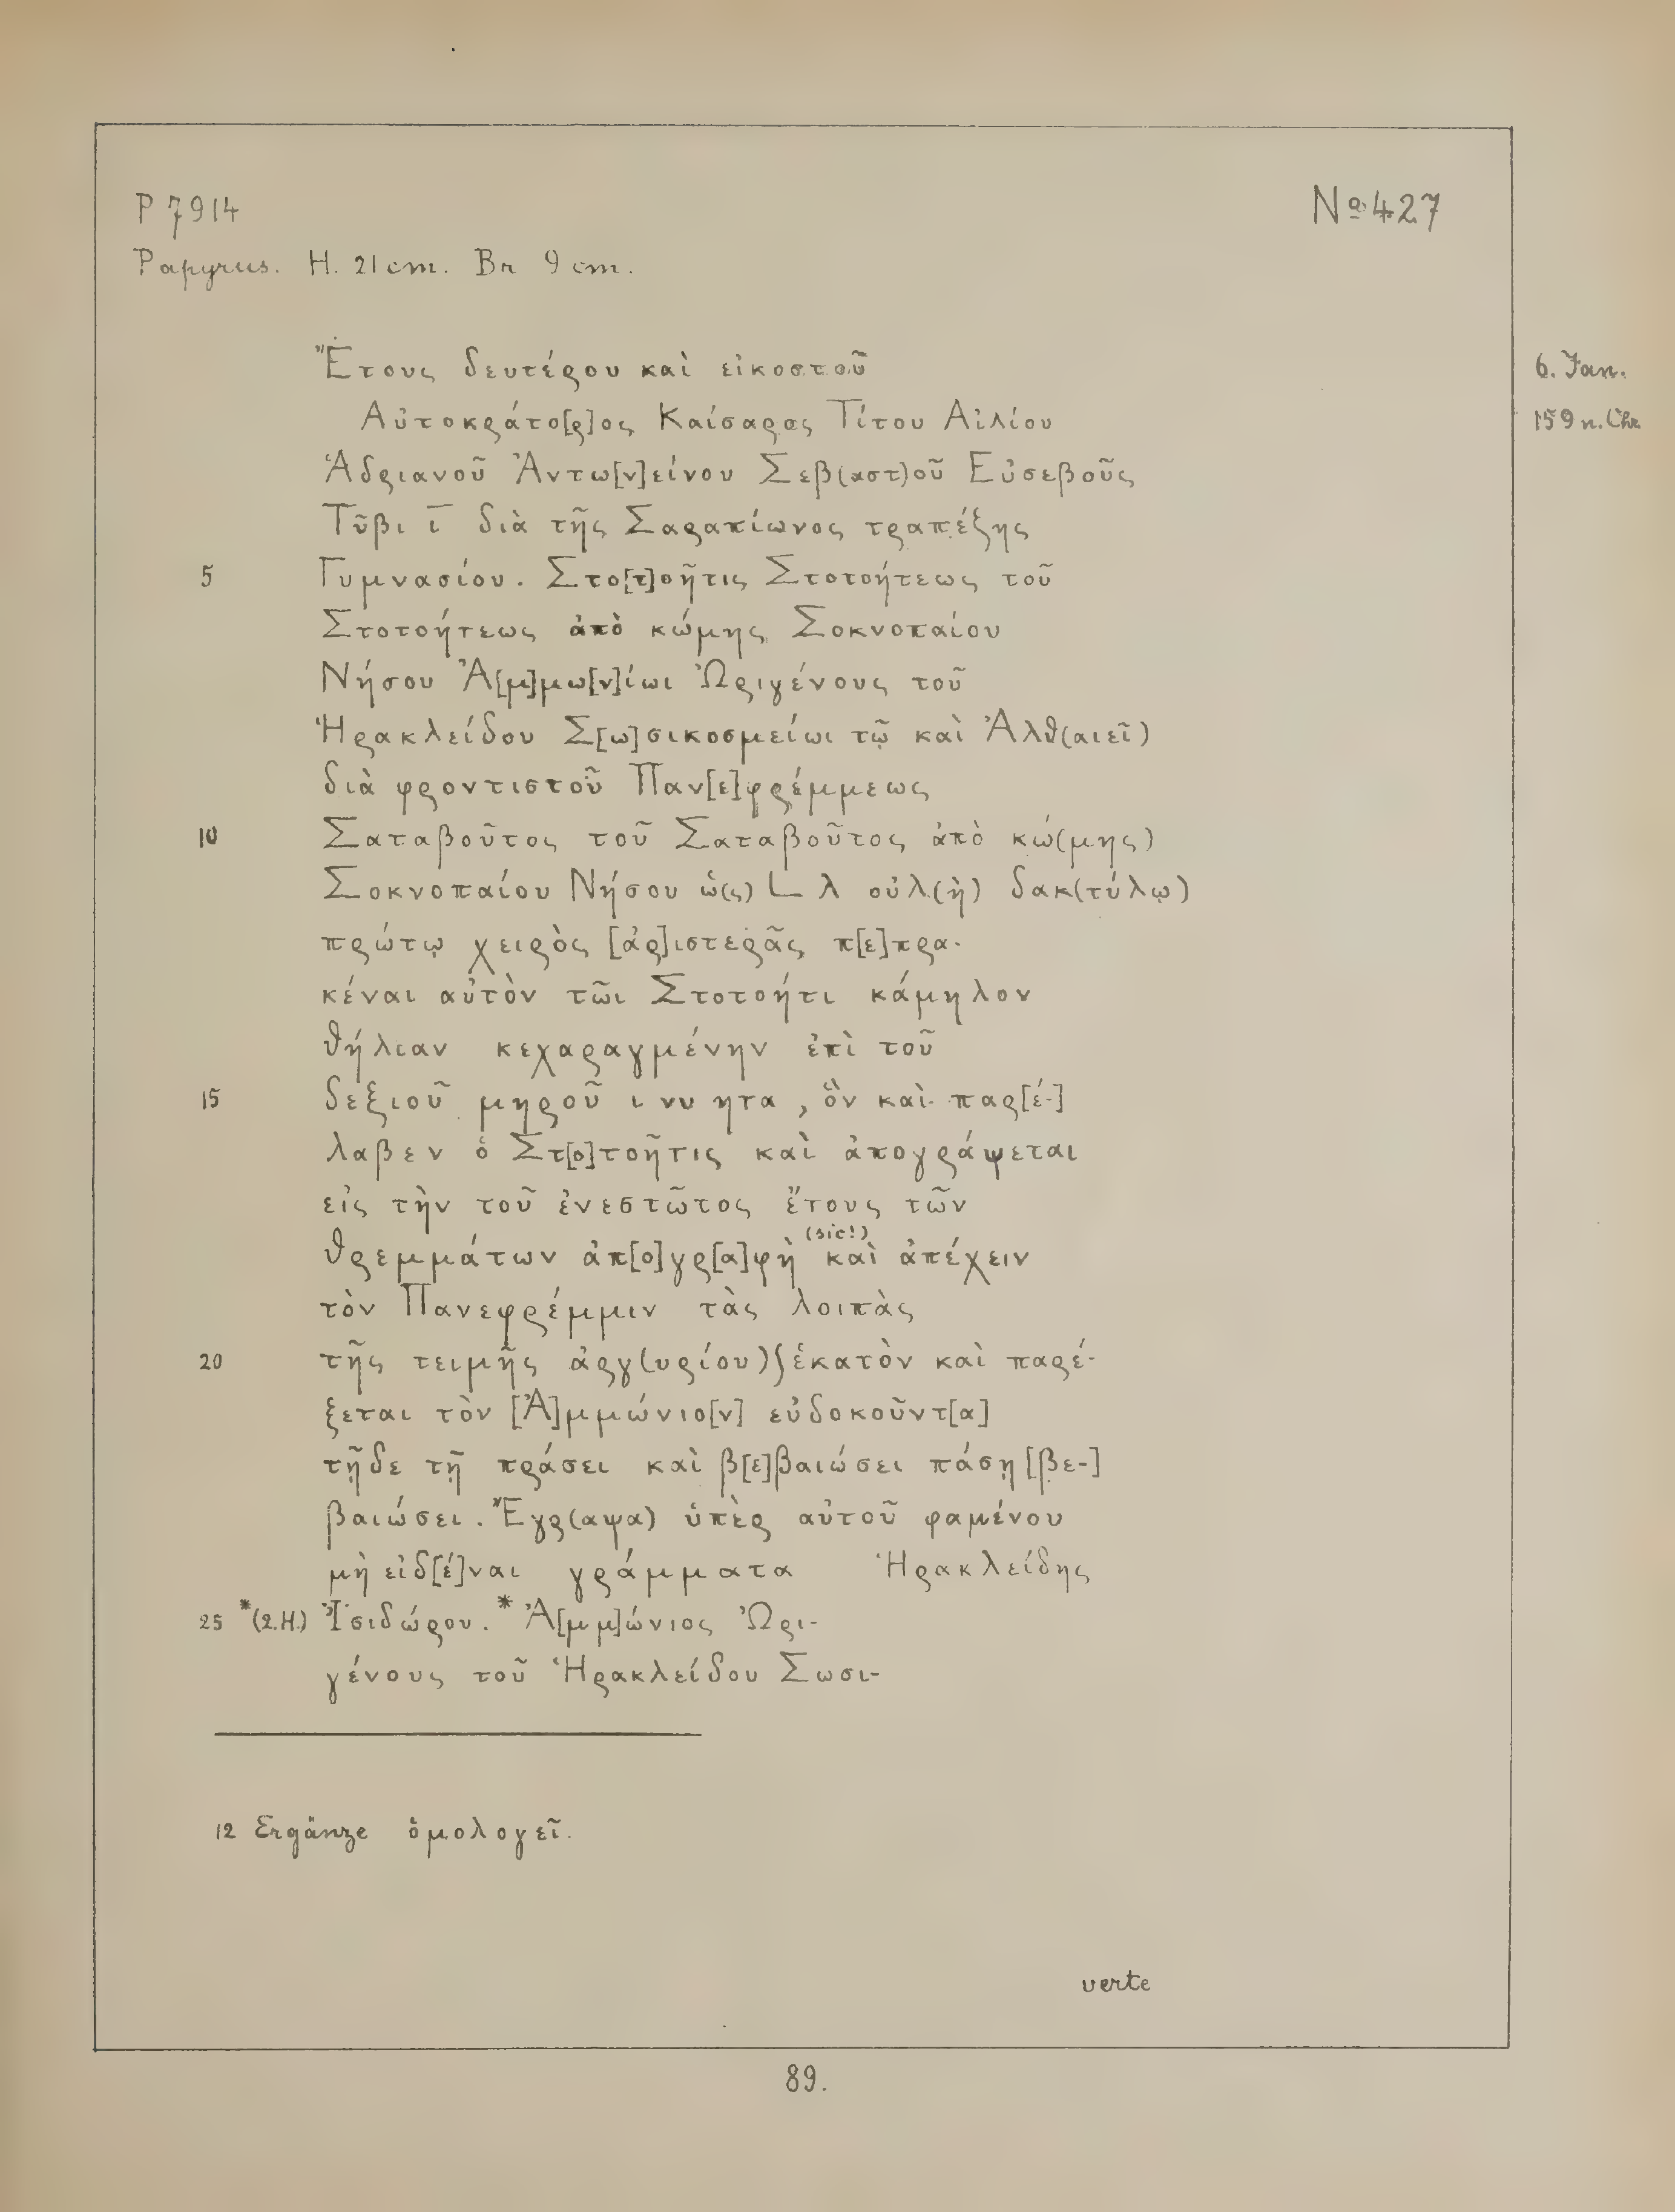 P 7914
Nº 427
Papyrus. H. 21 cm. Br 9 cm.
Ἔτους δευτέρου καὶ εἰκοστοῦ
6. Jan.
Αὐτοκράτο[ρ]ος Καίσαρος Τίτου Αἰλίου
159 n. Chr.
Ἁδριανοῦ Ἀντω[ν]είνου Σεβ(αστ)οῦ Εὐσεβοῦς
Τῦβι ῑ διὰ τῆς Σαραπίωνος τραπέζης
5 Γυμνασίου. Στο[τ]οῆτις Στοτοήτεως τοῦ
Στοτοήτεως ἀπὸ κώμης Σοκνοπαίου
Νήσου Ἀ[μ]μω[ν]ίωι Ὠριγένους τοῦ
Ἡρακλείδου Σ[ω]σικοσμείωι τῷ καὶ Ἀλθ(αιεῖ)
διὰ φροντιστοῦ Παν[ε]φρέμμεως
10 Σαταβοῦτος τοῦ Σαταβοῦτος ἀπὸ κώ(μης)
Σοκνοπαίου Νήσου ὡ(ς) L λ οὐλ(ὴ) δακ(τύλῳ)
πρώτῳ χειρὸς [ἀρ]ιστερᾶς π[ε]πρα-
κέναι αὐτὸν τῶι Στοτοήτι κάμηλον
θήλειαν κεχαραγμένην ἐπὶ τοῦ
15 δεξιοῦ μηροῦ ι νυ ητα, ὃν καὶ παρ[έ-]
λαβεν ὁ Στ[ο]τοῆτις καὶ ἀπογράψεται
εἰς τὴν τοῦ ἐνεστῶτος ἔτους τῶν
θρεμμάτων ἀπ[ο]γρ[α]φὴ (sic!) καὶ ἀπέχειν
τὸν Πανεφρέμμιν τὰς λοιπὰς
20 τῆς τειμῆς ἀργ(υρίου) ∫ ἑκατὸν καὶ παρέ-
ξεται τὸν [Ἀ]μμώνιο[ν] εὐδοκοῦντ[α]
τῇδε τῇ πράσει καὶ β[ε]βαιώσει πάσῃ [βε-]
βαιώσει. Ἔγρ(αψα) ὑπὲρ αὐτοῦ φαμένου
μὴ εἰδ[έ]ναι γράμματα Ἡρακλείδης
25 *(2.H.) Ἰσιδώρου. * Ἀ[μμ]ώνιος Ὠρι-
γένους τοῦ Ἡρακλείδου Σωσι-
12 Ergänze ὁμολογεῖ.
verte
89.